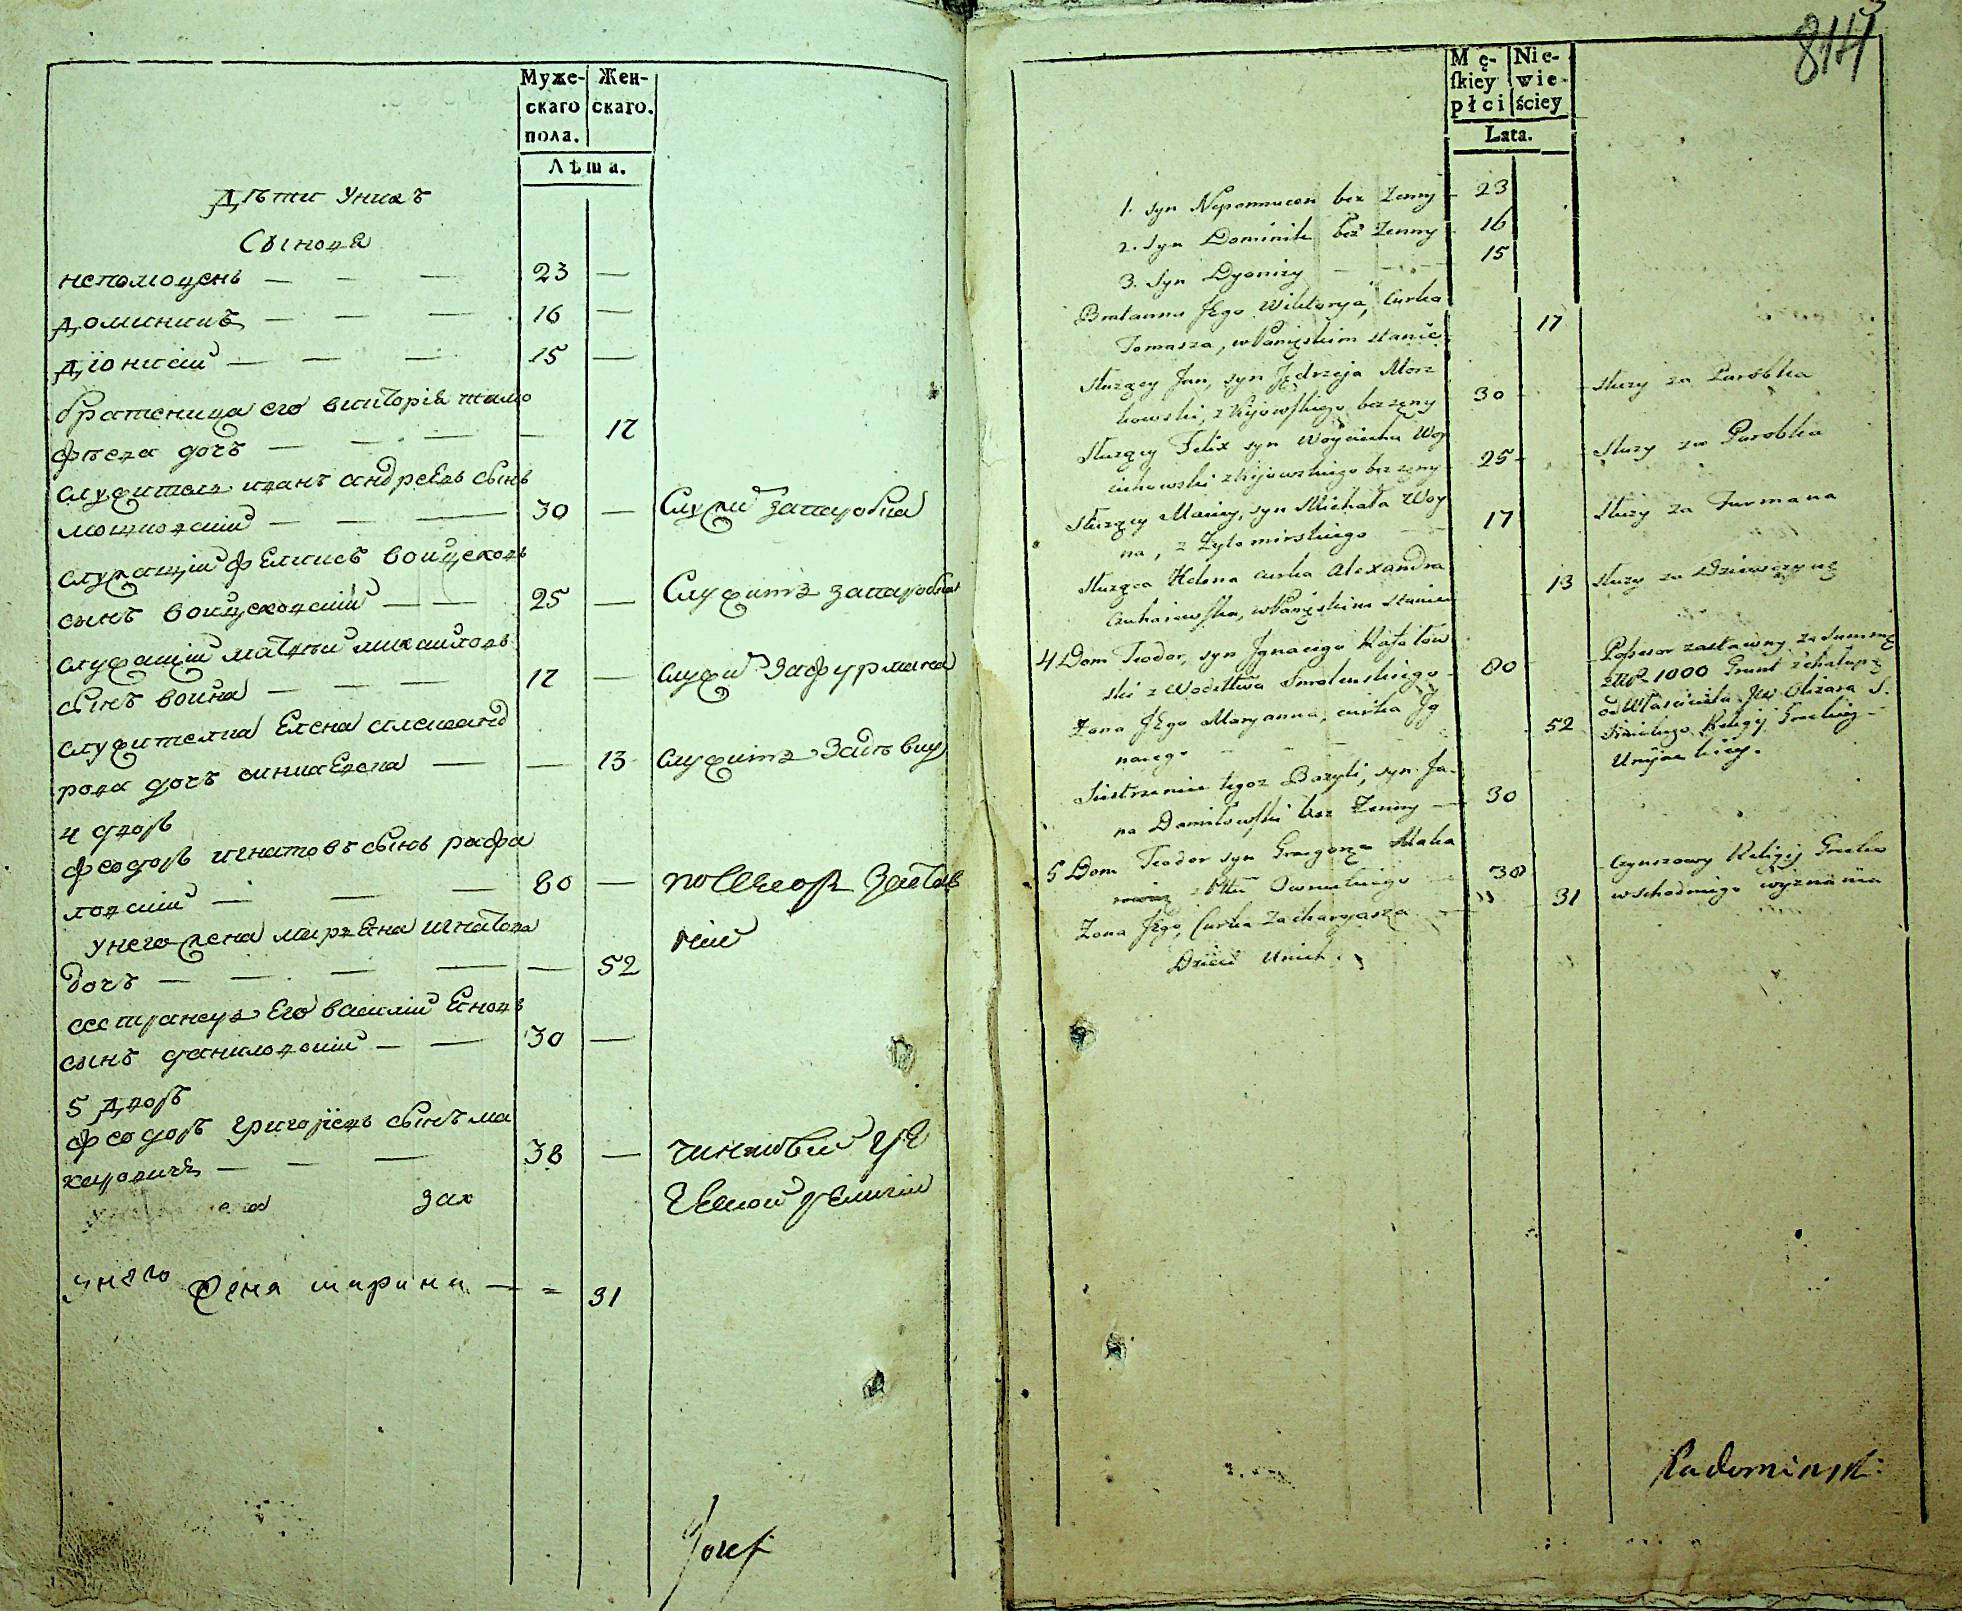 Муже-
скаго
пола.
Жен-
скаго.
Лѣта.
Дѣти унихъ
Сыновя
непомоцень — — — 23 —
доминикъ — — — 16 —
дїонисій — — — 15 —
братеница его викторія тамо
фѣева дочъ — — — — 17
служитель иванъ андреевъ сынъ
мошковскій — — — 30 — Служи запаробка
служащій феликсъ войцеховъ
сынъ войцеховскій — — 25 — Служитъ запаробка
служащій матвѣй михайловъ
сынъ война — — — 17 — служи зафурмана
служителка Елена александ
рова дочъ — — 13 служитъ задѣвку
4 дворъ
феодоръ игнатовъ сынъ рафа
ловскій — — — 80 — посесоръ застав
ній
унего жена марьяна игнатова
дочъ — — — — — 52
сестранецъ его василій Яновъ
сынъ даниловскій — — 30 —
5 дворъ
феодоръ григоріевъ сынъ ма
каровичъ — — — 38 — чиншовій гре
ческой религіи
зах
унего жена марина — = 31
Jozef
814
Mę-
skiey
płci
Nie-
wie-
ściey
Lata.
1. syn Nepomucen bez Zenny - 23
2. syn Dominik bez Zenny 16
3. syn Dyonizy - - - 15
Bratanna Jego Wiktorya, Curka
Tomasza, w Panieskim stanie 17
Służący Jan, syn Jędrzeja Mosz
kowski, z Kijowskiego bez żeny 30 - służy za Parobka
Służący Felix syn Woyciecha Woy
ciechowski z Kijowskiego bez żeny 25 - służy za Parobka
Służący Maciey, syn Michała Woy
na, z Zytomirskiego 17 służy za Furmana
Służąca Helena curka Alexandra
w Panieskim stanie 13 służy za Dziewczynę
4 Dom Teodor, syn Jgnacego Rafałow
ski z Wodztwa Smolenskiego - 80 Possesor zastawny za Summę
złł. 1000 Grunt z chałupą
od Właściciela JW Olizara S.
Religij Grecko
Unijackiey.
Zona JEgo Maryanna, curka Jg
nacego - - - 52
Siestrzeniec tegoż Bazyli, syn Ja-
na Daniłowski bez Zenny - 30
5 Dom Teodor syn Grzegorza Maka
rowicz z Pttu Owruckiego - 38 Czynszowy Religij Grecko
wschodniego wyznania
Zona JEgo, Curka Zacharyasza - 31
Dzieci Unich.
Radominski